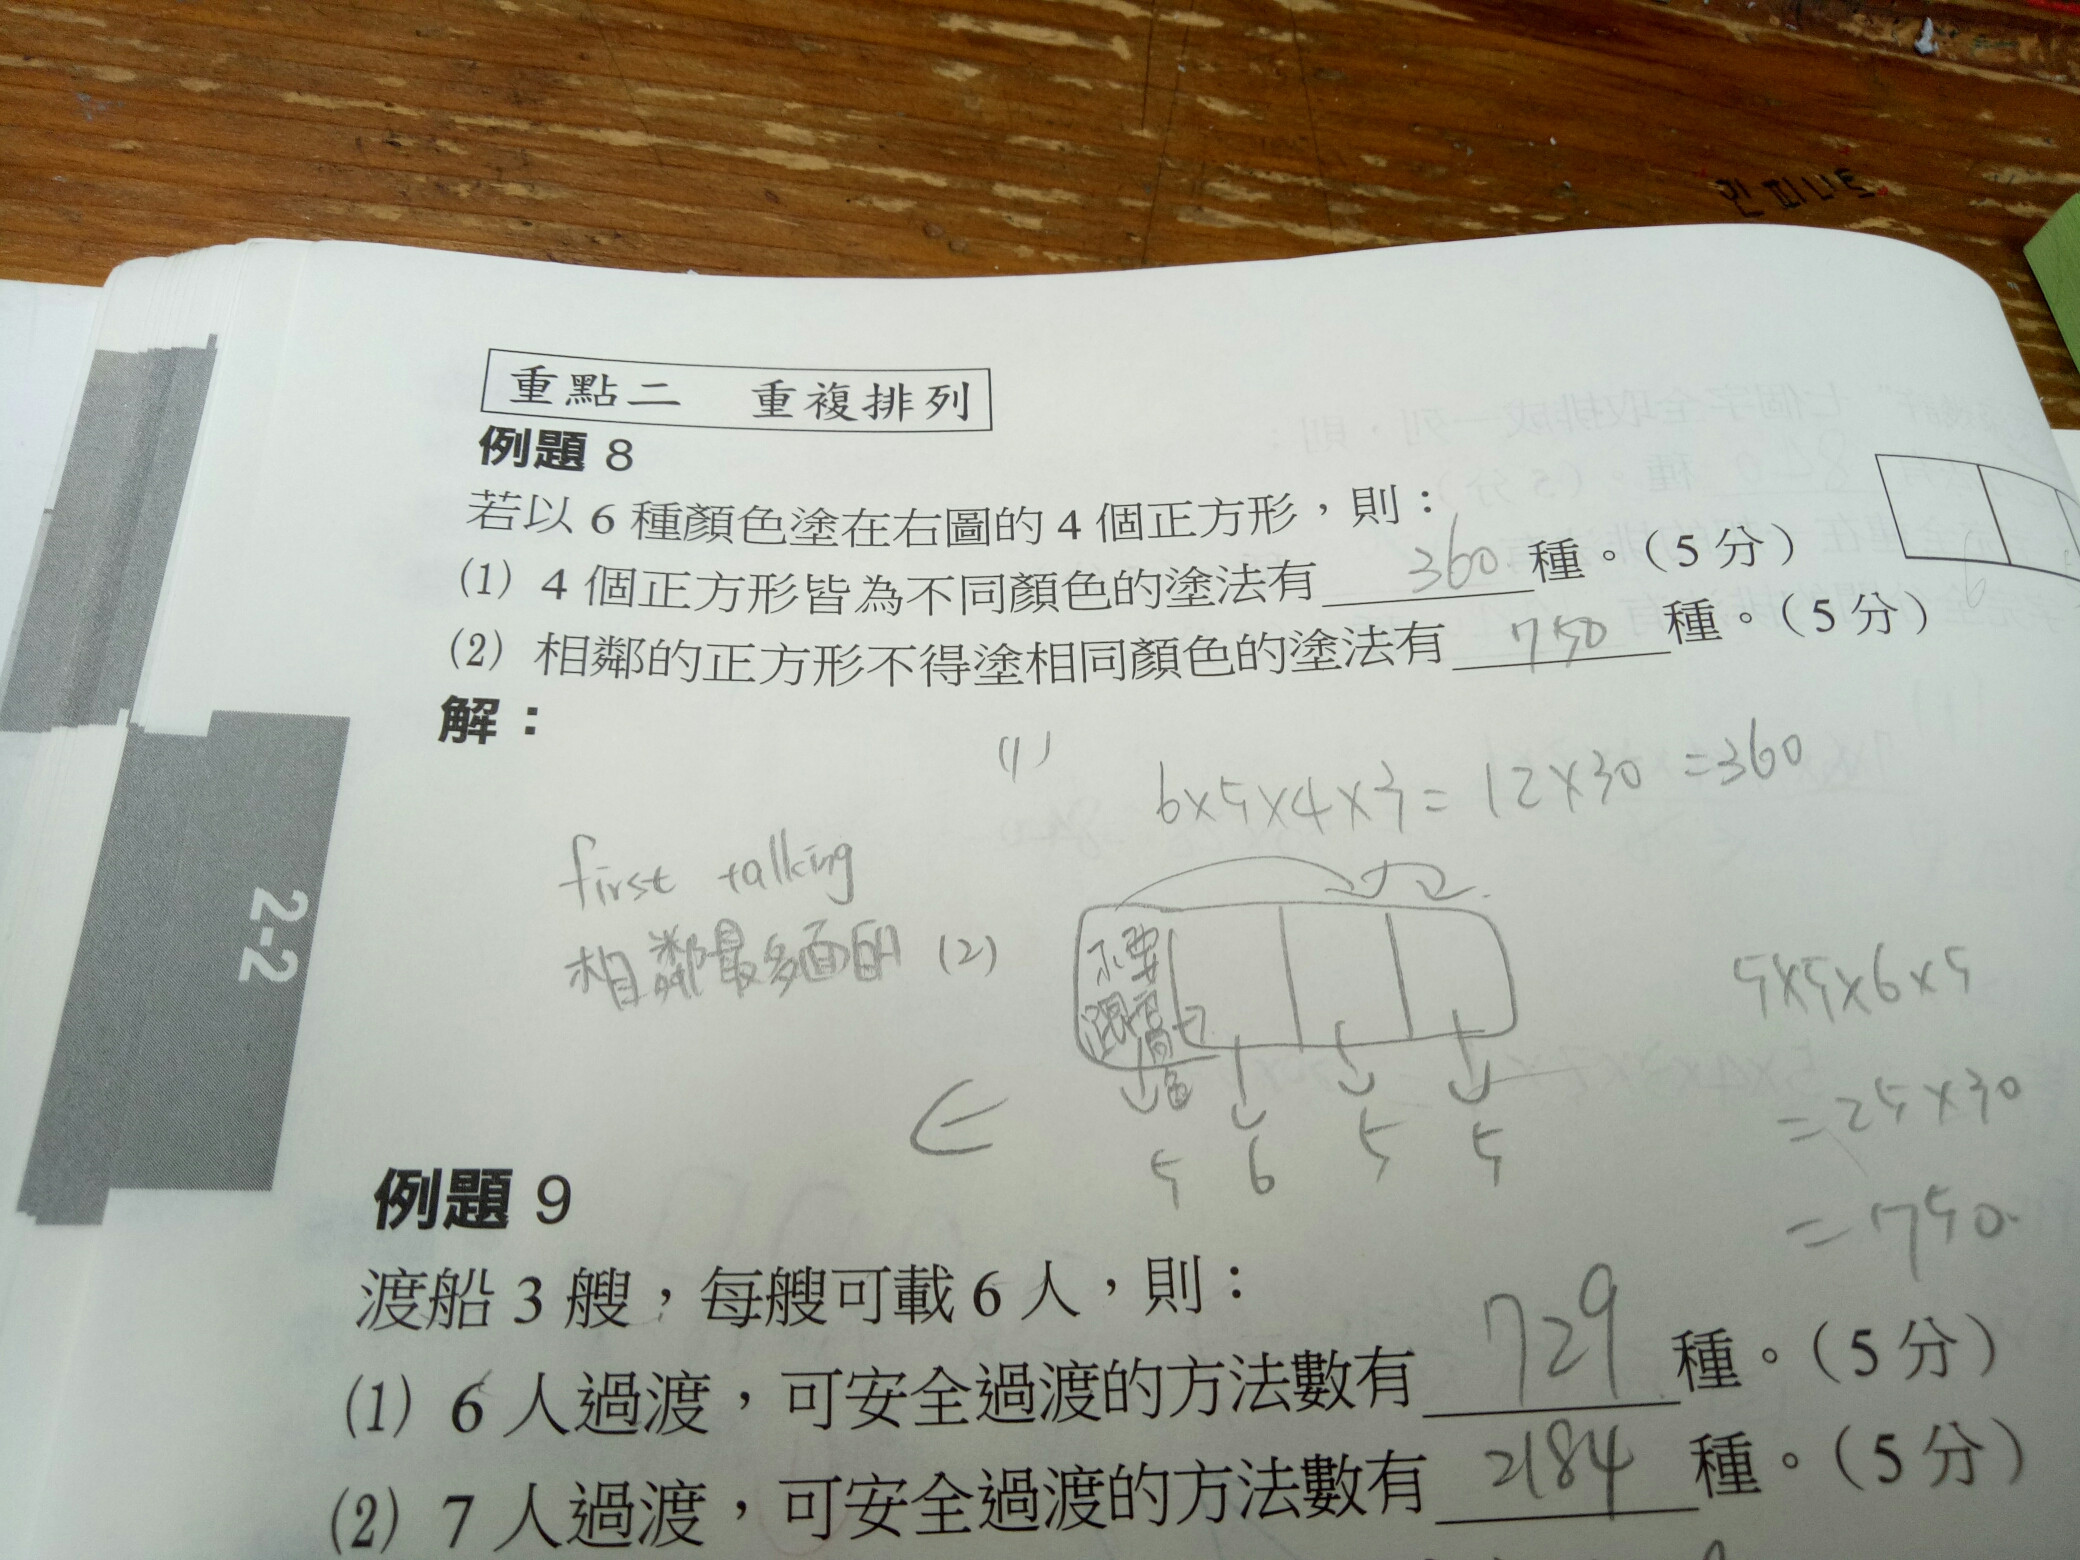 重點二 重複排列
例題 8
若以 6 種顏色塗在右圖的 4 個正方形，則：
(1) 4 個正方形皆為不同顏色的塗法有 360 種。（5 分）
(2) 相鄰的正方形不得塗相同顏色的塗法有 750 種。（5 分）
解：
(1)
6×5×4×3 = 12×30 = 360
first talking
相鄰最多面的 (2)
不要
跟
同
色
5 6 5 5
5×5×6×5
= 25×30
= 750
2-2
例題 9
渡船 3 艘，每艘可載 6 人，則：
(1) 6 人過渡，可安全過渡的方法數有 729 種。（5 分）
(2) 7 人過渡，可安全過渡的方法數有 2184 種。（5 分）